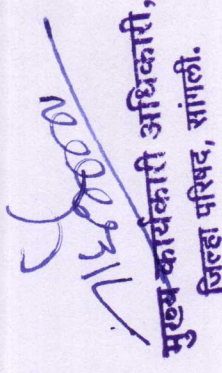 मुख्य कार्यकारी अधिकारी,
जिल्हा परिषद, सांगली.